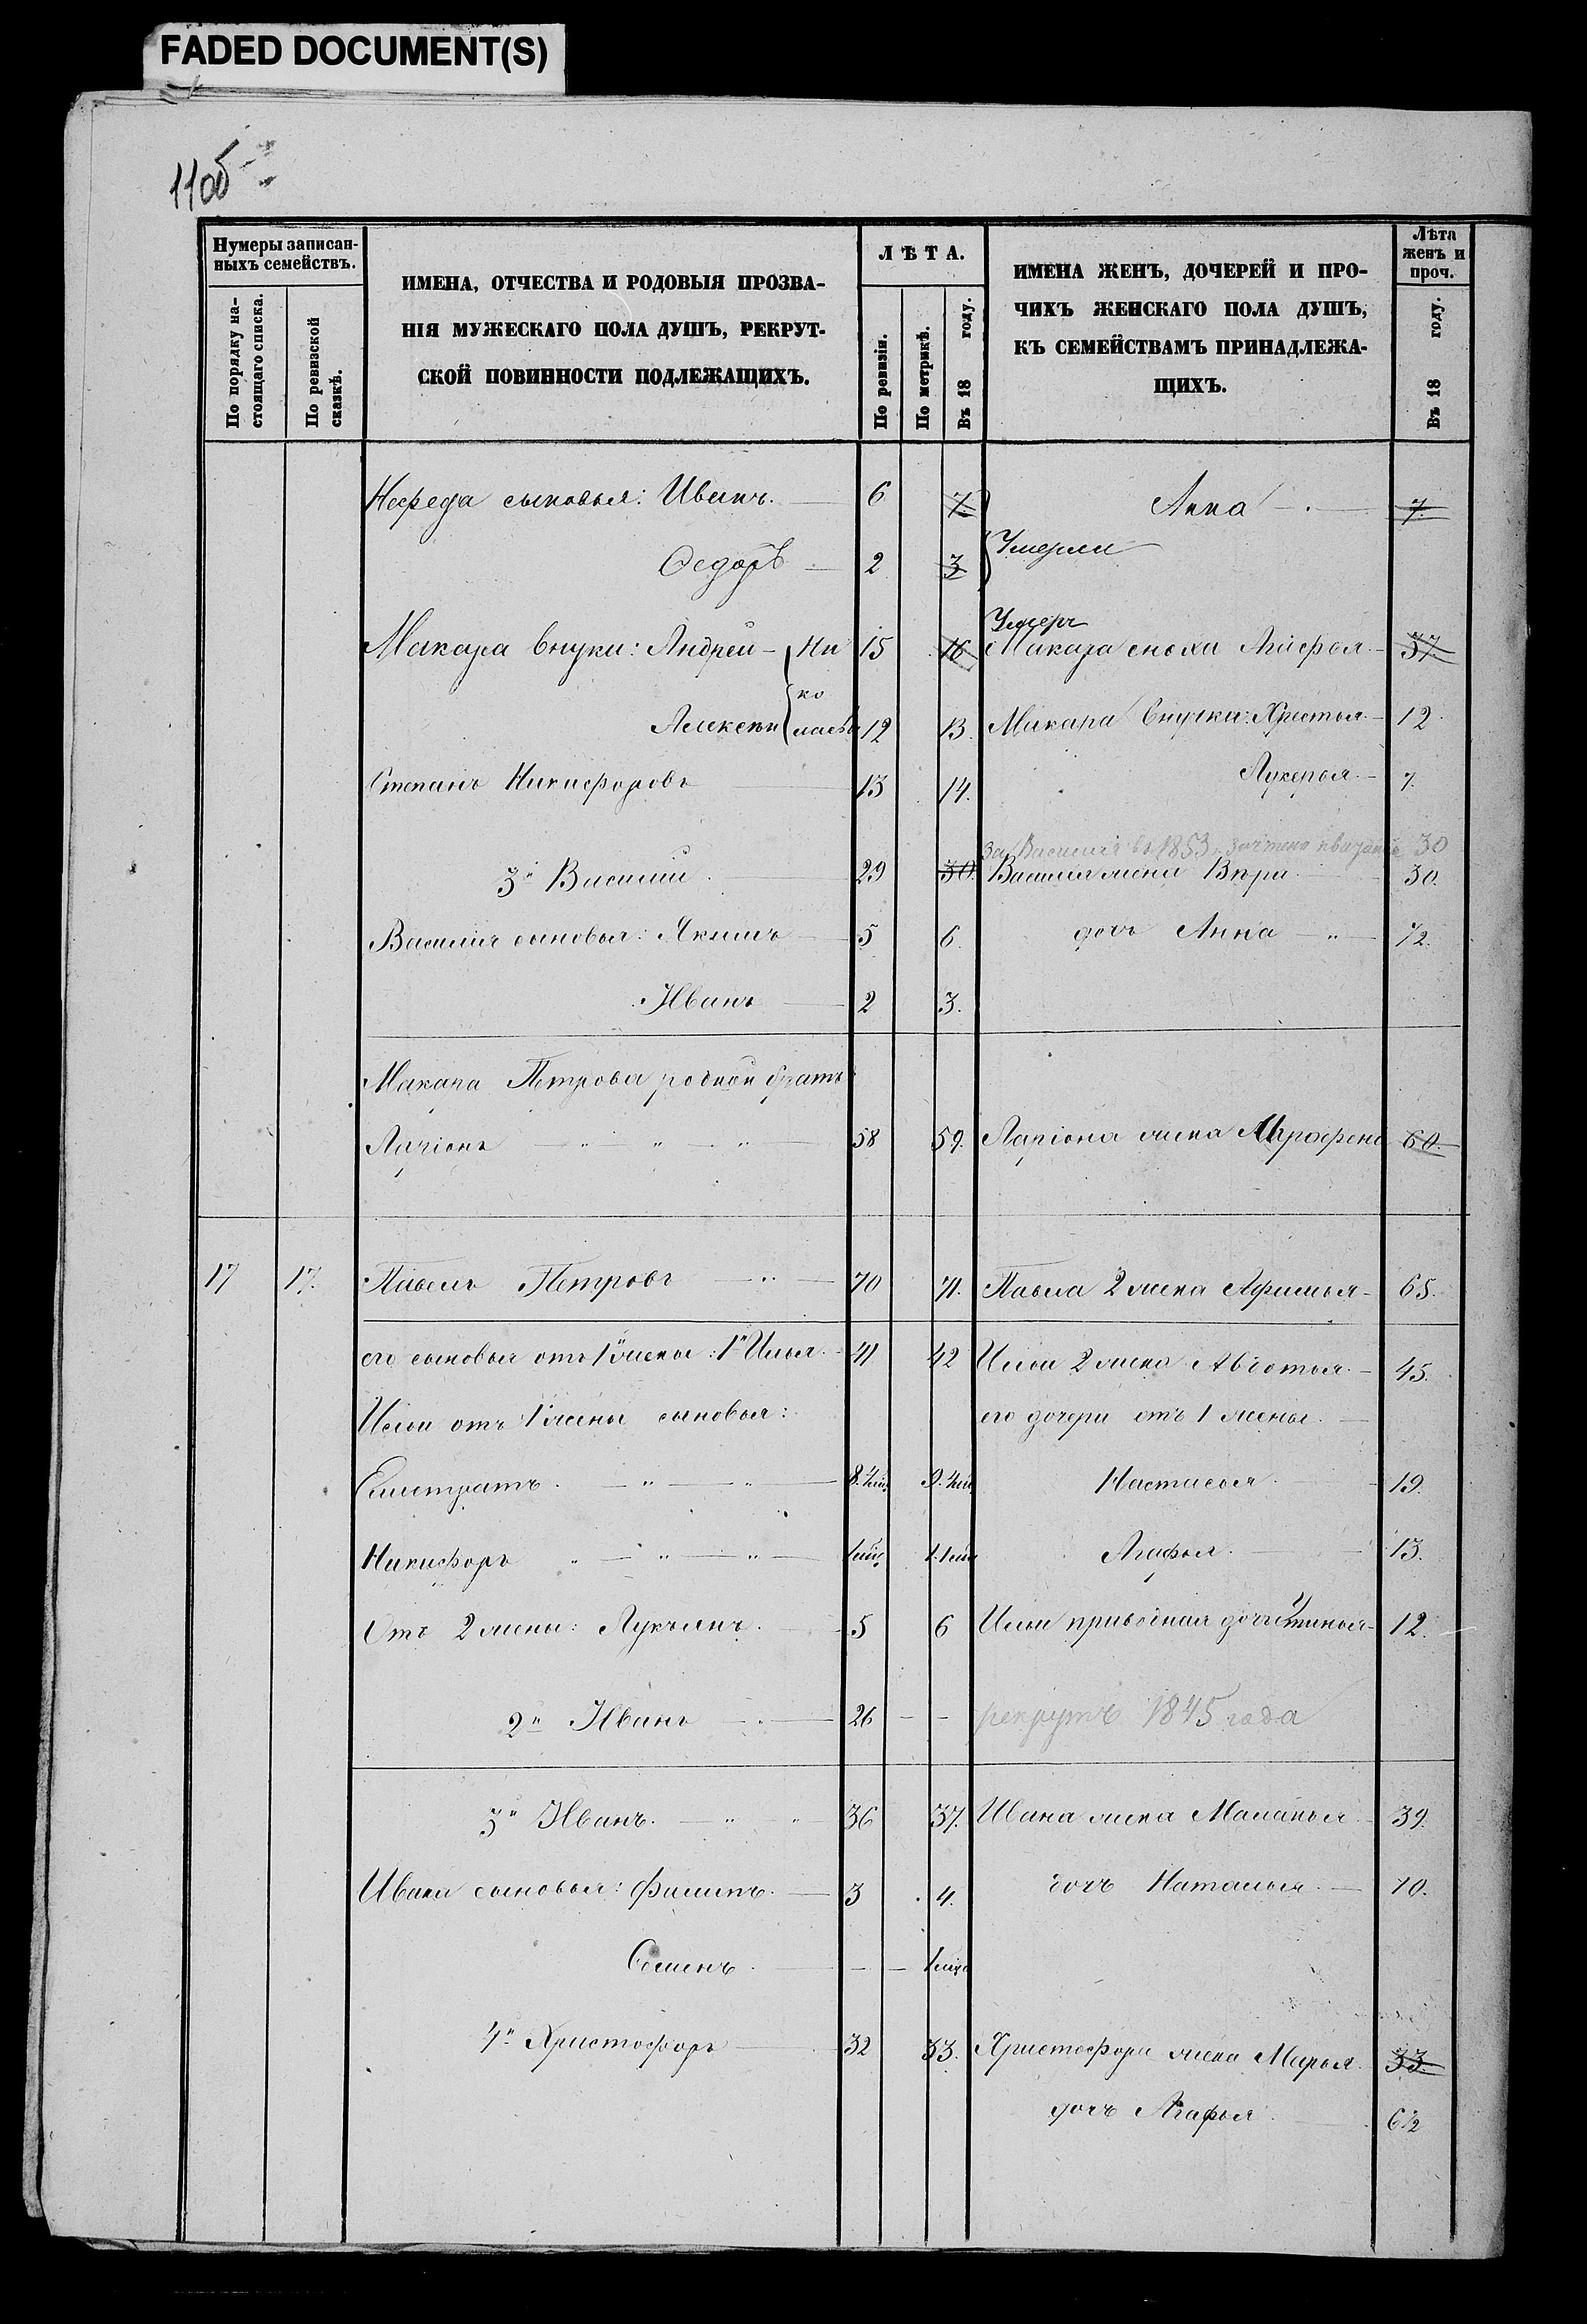 FADED DOCUMENT(S)
110б
Нумеры записан-
ныхъ семействъ.
По порядку на-
стоящаго списка.
По ревизской
сказкѣ.
ИМЕНА, ОТЧЕСТВА И РОДОВЫЯ ПРОЗВА-
НІЯ МУЖЕСКАГО ПОЛА ДУШЪ, РЕКРУТ-
СКОЙ ПОВИННОСТИ ПОДЛЕЖАЩИХЪ.
ЛѢТА.
По ревизіи.
По метрикѣ.
Въ 18 году.
ИМЕНА ЖЕНЪ, ДОЧЕРЕЙ И ПРО-
ЧИХЪ ЖЕНСКАГО ПОЛА ДУШЪ,
КЪ СЕМЕЙСТВАМЪ ПРИНАДЛЕЖА-
ЩИХЪ.
Лѣта
женъ и
проч.
Въ 18 году.
сыновья: Иванъ. 6 7 Анна 7.
Ѳедоръ 2 3 Умерли
Умеръ
Макара внуки: Андрей - Ни 15 16 Макара сноха Агафья - 37.
ко
Алексѣй лаевы 12 13. Макара внучки: Христья - 12.
Степанъ Никифоровъ 13 14. Лукерья - 7.
За Василія въ 1853 зачтена квитанція 30
3й Василій 29 30. Василія жена Вѣра 30.
Василія сыновья: Якимъ 5 6. дочь Анна " ½.
Иванъ 2 3.
Макара Петрова родной братъ
Ларіонъ " " " 58 59. Ларіона жена Аграфена 60.
17 17. Павелъ Петровъ " 70 71. Павла 2 жена Афимья - 65.
его сыновья отъ 1й жены: 1й Илья - 41 42 Ильи 2 жена Авдотья - 45.
Ильи отъ 1 жены сыновья: его дочери отъ 1 жены.
Елистратъ. " " 8. 9. Настасья 19.
Никифоръ " " " Агафья. 13.
Отъ 2 жены: Лукьянъ. 5 6 Ильи приводная дочь Устинья - 12.
2й Иванъ 26 - - рекрутъ 1845 года
3й Иванъ. " " 36 37. Ивана жена Маланья 39.
Ивана сыновья: Филипъ. 3 4. дочь Наталья. 10.
Семенъ. - -
4й Христофоръ 32 33. Христофора жена Марья. 33.
дочь Агафья 6½